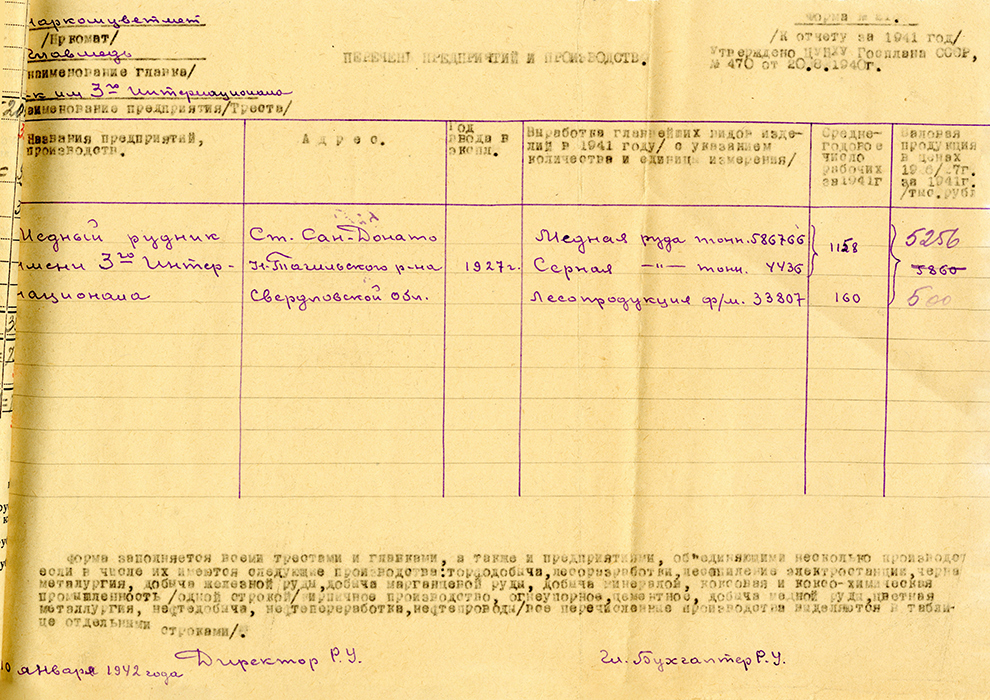 Наркомцветмет
/Нркомат/
Главмедь
наименование главка/
к им 3го Интернационала
наименование предприятия/Треста/
/К отчету за 1941 год/
Утверждено ЦУНХУ Госплана СССР,
№ 470 от 20.8.1940г.
ПЕРЕЧЕНЬ ПРЕДПРИЯТИЙ И ПРОИЗВОДСТВ.
Названия предприятий,
производств.
Адрес.
Год
ввода в
экспл.
Выработка главнейших видов изде-
лий в 1941 году/ с указанием
количества и единицы измерения/
Средне-
годовое
число
рабочих
за1941г
Валовая
продукция
в ценах
1926/27г.
за 1941г.
/тыс.рубл
Медный рудник Ст. Сан-Донато Медная руда тонн. 586766 1158 5256
имени 3го Интер- Н-Тагильского р-на 1927г. Серная -"- тонн. 4436 5860
национала Свердловской Обл. Лесопродукция ф/м. 33807 160 500
форма заполняется всеми трестами и главками, а также и предприятиями, объединяющими несколько производст
если в числе их имеются следующие производства:торфодобыча,лесоразработки, электростанции,черна
металлургия, добыча железной руды,добыча марганцевой руды, добыча минералов, коксовая и коксо-химическая
промышленность /одной строкой/ кирпичное производство, огнеупорное,цементное, добыча медной руды,цветная
металлургия, нефтедобыча, нефтепереработка,нефтепроводы/все перечисленные производства выделяются в табли-
це отдельными
строками/.
января 1942 года Директор Р.У. Гл. Бухгалтер Р.У.